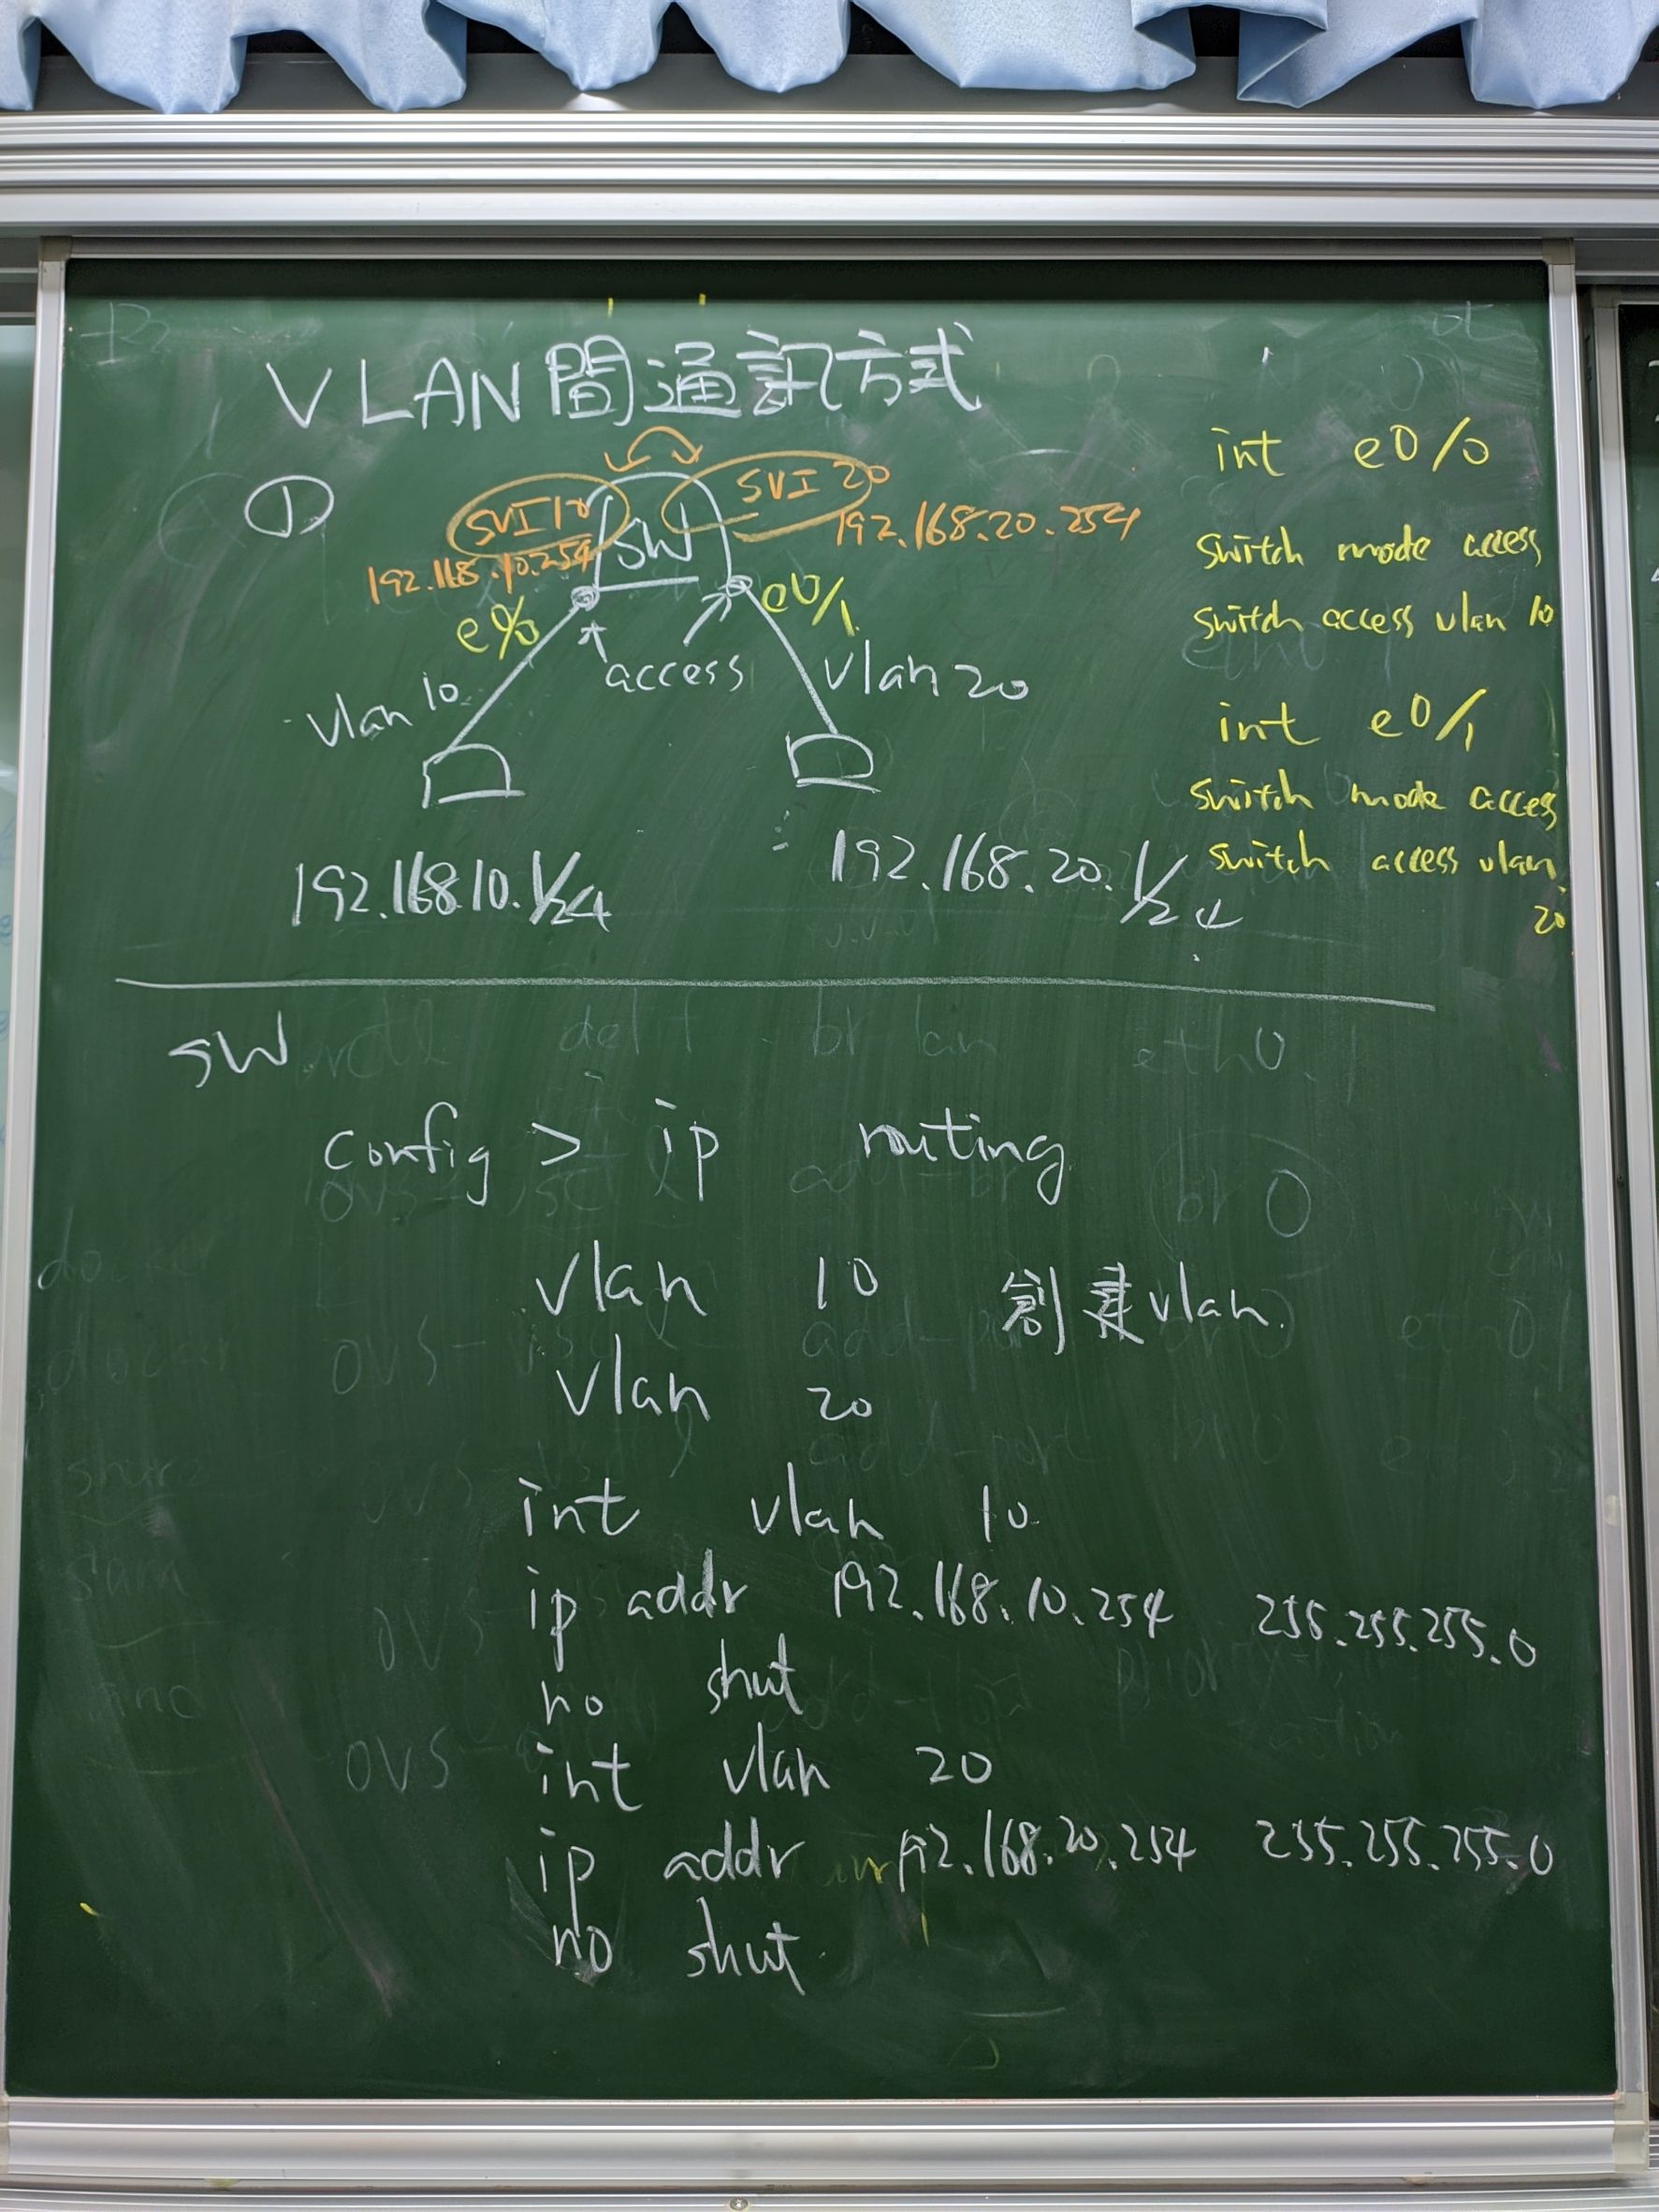 VLAN間通訊方式
①
SVI 10
SVI 20
192.168.10.254
SW
192.168.20.254
e0/0
e0/1
access
vlan 10
vlan 20
192.168.10.1/24
192.168.20.1/24
int e0/0
switch mode access
switch access vlan 10
int e0/1
switch mode acces
switch access vlan
20
SW
config > ip routing
vlan 10 創建vlan
vlan 20
int vlan 10
ip addr 192.168.10.254 255.255.255.0
no shut
int vlan 20
ip addr 192.168.20.254 255.255.255.0
no shut